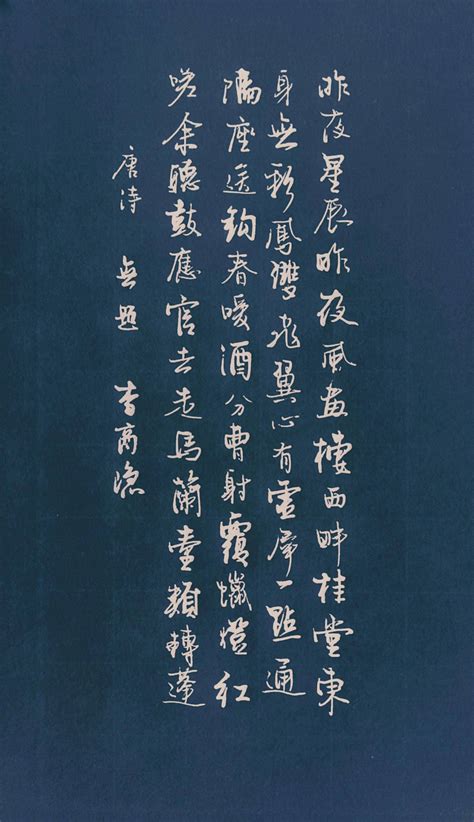 昨夜星辰昨夜風畫樓西畔桂堂東
身無彩鳳雙飛翼心有靈犀一點通
隔座送鈎春暖酒分曹射覆蠟燈紅
嗟余聽鼓應官去走馬蘭臺類轉蓬
唐詩 無題 李商隱